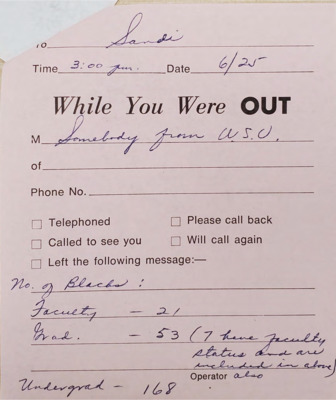 To Sandi
Time 3:00 pm. Date 6/25
While You Were OUT
M Somebody from W.S.U.
of
Phone No.
Telephoned Please call back
Called to see you Will call again
Left the following message:—
No. of Blacks :
Faculty - 21
Grad. - 53 (7 have faculty
status and are
included in above)
Operator also
Undergrad - 168